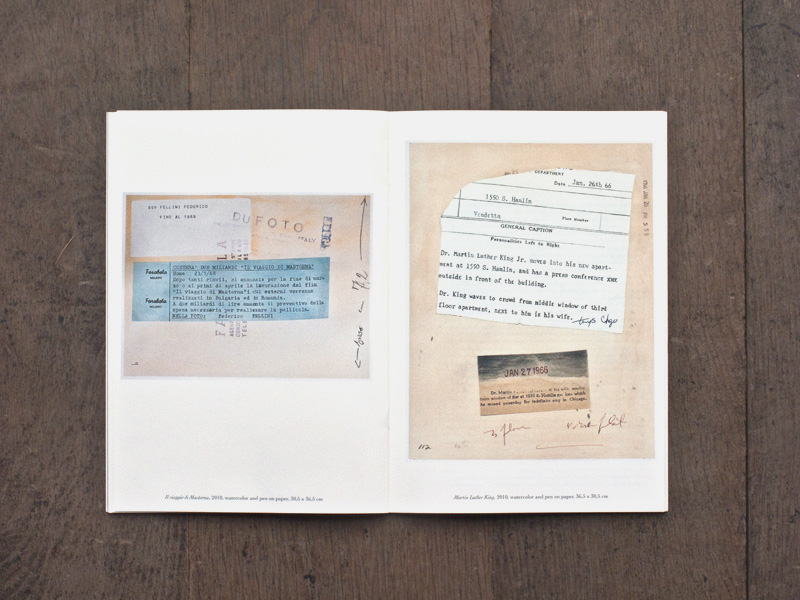 809 FELLINI FEDERICO
FINO AL 1969
DUFOTO
ITALY
Farabola
MILANO
Farabola
MILANO
COSTERA' DUE MILIARDI "IL VIAGGIO DI MASTORNA"
Roma 21/1/68
Dopo tanti rinvii, si annunzia per la fine di mar-
zo o ai primi di aprile la lavorazione del film
"Il viaggio di Mastorna"i cui esterni verranno
realizzati in Bulgaria ed in Romania.
A due miliardi di lire ammonta il preventivo della
spesa necessaria per realizzare la pellicola.
NELLA FOTO: Federico FELLINI
7,2
Il viaggio di Mastorna, 2010, watercolor and pen on paper, 30,5 x 36,5 cm
DEPARTMENT
Date Jan. 26th 66
1550 S. Hamlin
Vendetta
Place Number
GENERAL CAPTION
Personalities Left to Right
Dr. Martin Luther King Jr. moves into his new apart-
ment at 1550 S. Hamlin, and has a press conference XMX
outside in front of the building.
Dr. King waves to crowd from middle window of third
floor apartment, next to him is his wife.
JAN 27 1966
Dr. Martin
he moved yesterday for indefinite stay in Chicago.
112
Martin Luther King, 2010, watercolor and pen on paper, 36,5 x 30,5 cm